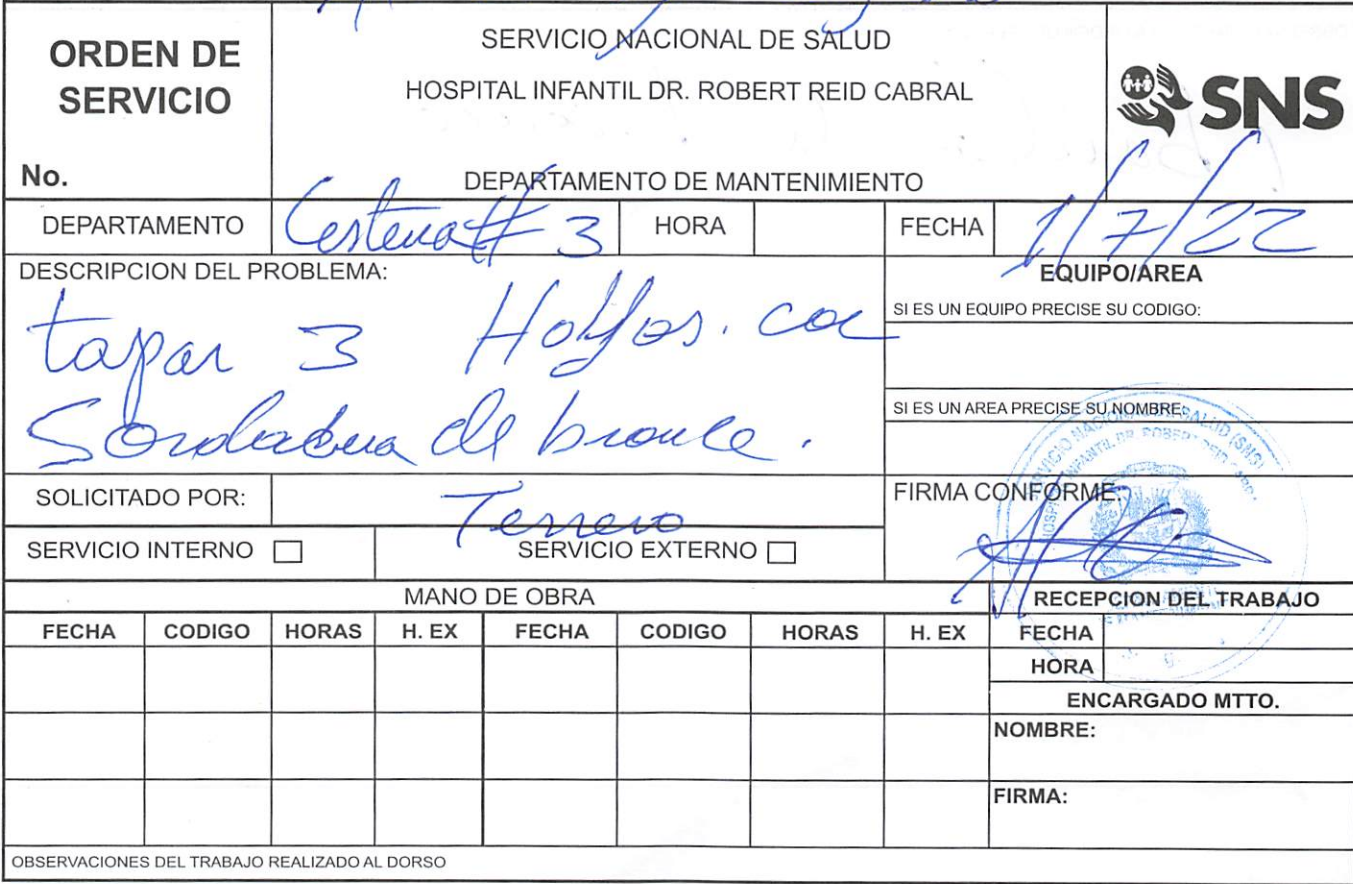 ORDEN DE
SERVICIO
No.
SERVICIO NACIONAL DE SALUD
HOSPITAL INFANTIL DR. ROBERT REID CABRAL
DEPARTAMENTO DE MANTENIMIENTO
SNS
DEPARTAMENTO # 3 HORA FECHA 1/7/22
DESCRIPCION DEL PROBLEMA:
tapar 3
de bronce.
EQUIPO/AREA
SI ES UN EQUIPO PRECISE SU CODIGO:
SI ES UN AREA PRECISE SU NOMBRE:
SOLICITADO POR: Terrero
FIRMA CONFORME:
SERVICIO INTERNO SERVICIO EXTERNO
MANO DE OBRA
RECEPCION DEL TRABAJO
FECHA CODIGO HORAS H. EX FECHA CODIGO HORAS H. EX FECHA
HORA
ENCARGADO MTTO.
NOMBRE:
FIRMA:
OBSERVACIONES DEL TRABAJO REALIZADO AL DORSO